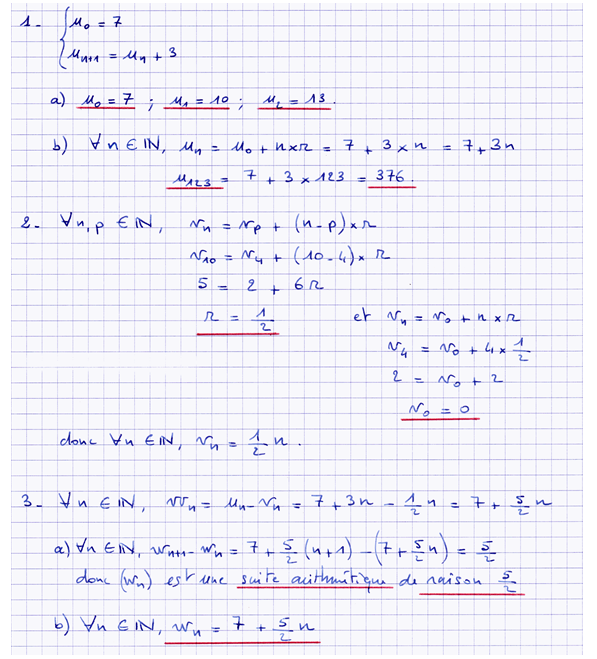 1- { u₀ = 7
uₙ₊₁ = uₙ + 3
a) u₀ = 7 ; u₁ = 10 ; u₂ = 13.
b) ∀n ∈ ℕ, uₙ = u₀ + n×r = 7 + 3×n = 7+3n
u₁₂₃ = 7 + 3 × 123 = 376.
2- ∀n,p ∈ ℕ, vₙ = vₚ + (n-p)×r
v₁₀ = v₄ + (10-4)×r
5 = 2 + 6r
r = 1/2 et vₙ = v₀ + n×r
v₄ = v₀ + 4×1/2
2 = v₀ + 2
v₀ = 0
donc ∀n ∈ ℕ, vₙ = 1/2 n.
3- ∀n ∈ ℕ, wₙ = uₙ-vₙ = 7+3n - 1/2 n = 7 + 5/2 n
a) ∀n ∈ ℕ, wₙ₊₁-wₙ = 7+5/2(n+1) -(7+5/2 n) = 5/2
donc (wₙ) est une suite arithmétique de raison 5/2
b) ∀n ∈ ℕ, wₙ = 7 + 5/2 n